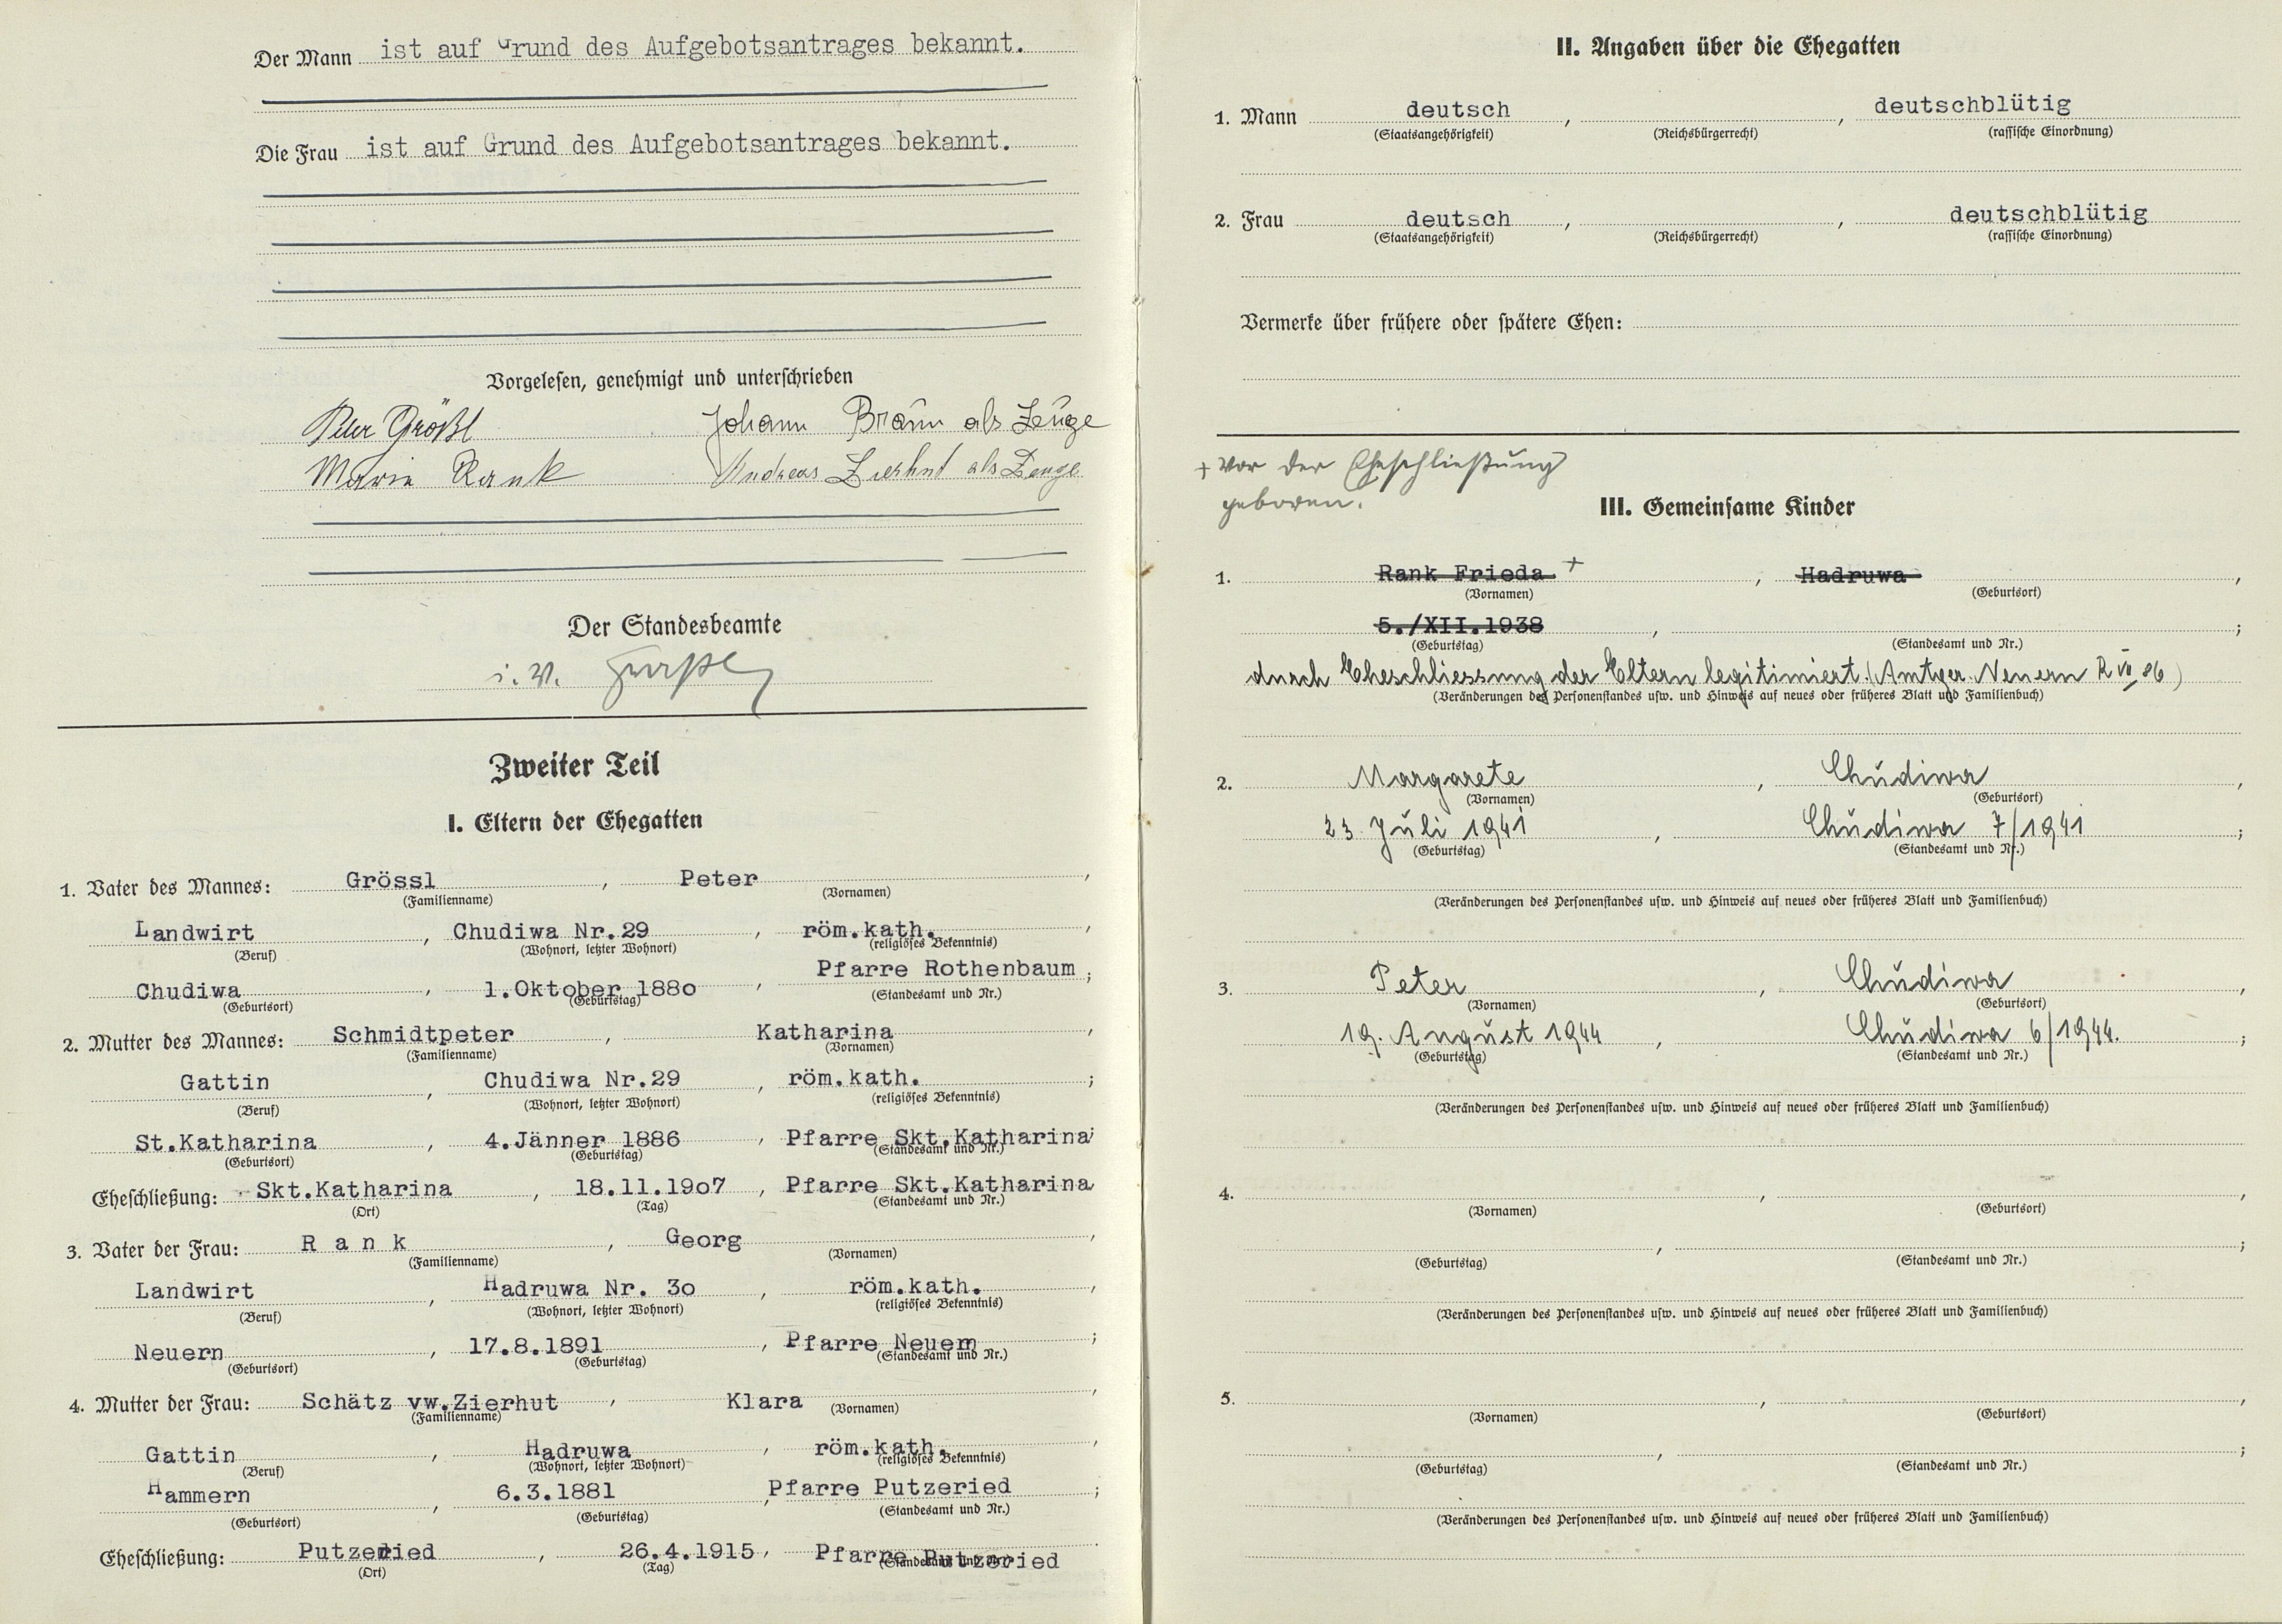 Der Mann ist auf Grund des Aufgebotsantrages bekannt.
Die Frau ist auf Grund des Aufgebotsantrages bekannt.
Vorgelesen, genehmigt und unterschrieben
Peter Größl Johann Braun als Zeuge
Marie Rank Andreas Zierhut als Zeuge
Der Standesbeamte
i. V.
Zweiter Teil
I. Eltern der Ehegatten
1. Vater des Mannes: Grössl , Peter ,
(Familienname) (Vornamen)
Landwirt , Chudiwa Nr.29 , röm.kath. ,
(Beruf) (Wohnort, letzter Wohnort) (religiöses Bekenntnis)
Chudiwa , 1.Oktober 188o , Pfarre Rothenbaum ;
(Geburtsort) (Geburtstag) (Standesamt und Nr.)
2. Mutter des Mannes: Schmidtpeter , Katharina ,
(Familienname) (Vornamen)
Gattin , Chudiwa Nr.29 , röm.kath. ;
(Beruf) (Wohnort, letzter Wohnort) (religiöses Bekenntnis)
St.Katharina , 4.Jänner 1886 , Pfarre Skt.Katharina ;
(Geburtsort) (Geburtstag) (Standesamt und Nr.)
Eheschließung: Skt.Katharina , 18.11.19o7 , Pfarre Skt.Katharina
(Ort) (Tag) (Standesamt und Nr.)
3. Vater der Frau: R a n k , Georg ,
(Familienname) (Vornamen)
Landwirt , Hadruwa Nr. 3o , röm.kath. ,
(Beruf) (Wohnort, letzter Wohnort) (religiöses Bekenntnis)
Neuern , 17.8.1891 , Pfarre Neuern ;
(Geburtsort) (Geburtstag) (Standesamt und Nr.)
4. Mutter der Frau: Schätz vw.Zierhut , Klara ,
(Familienname) (Vornamen)
Gattin , Hadruwa , röm.kath. ,
(Beruf) (Wohnort, letzter Wohnort) (religiöses Bekenntnis)
Hammern , 6.3.1881 , Pfarre Putzeried ;
(Geburtsort) (Geburtstag) (Standesamt und Nr.)
Eheschließung: Putzeried , 26.4.1915 , Pfarre Putzeried
(Ort) (Tag) (Standesamt und Nr.)
II. Angaben über die Ehegatten
1. Mann deutsch , , deutschblütig
(Staatsangehörigkeit) (Reichsbürgerrecht) (rassische Einordnung)
2. Frau deutsch , , deutschblütig
(Staatsangehörigkeit) (Reichsbürgerrecht) (rassische Einordnung)
Vermerke über frühere oder spätere Ehen:
+ vor der Eheschließung
geboren.
III. Gemeinsame Kinder
1. Rank Frieda + , Hadruwa ,
(Vornamen) (Geburtsort)
5./XII.1938 , ;
(Geburtstag) (Standesamt und Nr.)
durch Eheschliessung der Eltern legitimiert. (Amtger. Neuern R VII 86)
(Veränderungen des Personenstandes usw. und Hinweis auf neues oder früheres Blatt und Familienbuch)
2. Margarete , Chudiwa ,
(Vornamen) (Geburtsort)
23. Juli 1941 , Chudiwa 7/1941 ;
(Geburtstag) (Standesamt und Nr.)
(Veränderungen des Personenstandes usw. und Hinweis auf neues oder früheres Blatt und Familienbuch)
3. Peter , Chudiwa ,
(Vornamen) (Geburtsort)
19. August 1944 , Chudiwa 6/1944. ;
(Geburtstag) (Standesamt und Nr.)
(Veränderungen des Personenstandes usw. und Hinweis auf neues oder früheres Blatt und Familienbuch)
4. , ,
(Vornamen) (Geburtsort)
, ;
(Geburtstag) (Standesamt und Nr.)
(Veränderungen des Personenstandes usw. und Hinweis auf neues oder früheres Blatt und Familienbuch)
5. , ,
(Vornamen) (Geburtsort)
, ;
(Geburtstag) (Standesamt und Nr.)
(Veränderungen des Personenstandes usw. und Hinweis auf neues oder früheres Blatt und Familienbuch)